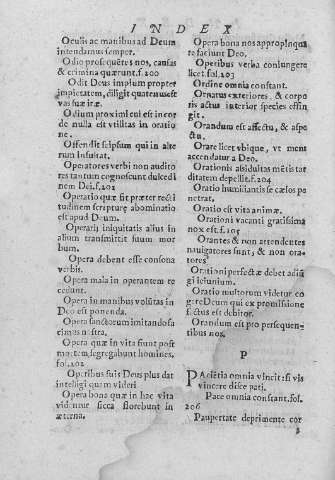 INDEX
Oculis ac manibus ad Deum
intendamus semper.
Odio prosequētes nos, causas
& crimina quærunt. f.200
Odit Deus impium propter
impietatem, diligit quatenus est
vas suæ iræ.
Odium proximi leui est in cor
de nulla est vtilitas in oratio
ne.
Offendit seipsum qui in alte
rum insultat.
Operatores verbi non audito
res tantum cognoscunt dulcedi
nem Dei. f.202
Operatio quæ fit præter recti
tudinem scripturę abominatio
est apud Deum.
Operarij iniquitatis alius in
alium transmittit suum mor
bum.
Opera debent esse consona
verbis.
Opera mala in operantem re
cedunt.
Opera in manibus volūtas in
Deo est ponenda.
Opera sanctorum imitando fa
cimus nostra.
Opera quæ in vita sunt post
mortem segregabunt homines.
fol.202
Operibus suis Deus plus dat
intelligi quam videri
Opera bona quæ in hac vita
videntur sicca florebunt in
æterna.
Opera bona nos appropinqua
re faciunt Deo.
Operibus verba coniungere
licet fol.203
Ordine omnia constant.
Ornatus exteriores, & corpo
ris actus interior species effin
git.
Orandum est affectu, & aspe
ctu.
Orare licet vbique, vt mens
accendatur a Deo.
Orationis assiduitas mētis tar
ditatem depellit. f.204
Oratio humiliantis se cælos pe
netrat.
Oratio est vita animæ.
Orationi vacanti gratissima
nox est f.205
Orantes & non attendentes
nauigatores sunt, & non ora-
tores
Orationi perfectæ debet adiū
gi ieiunium.
Oratio multorum videtur co
gere Deum qui ex promissione
factus est debitor.
Orandum est pro persequen-
tibus nos.
P
PAciētia omnia vincit: si vis
vincere disce pati.
Pace omnia constant. fol.
206
Paupertate deprimente cor